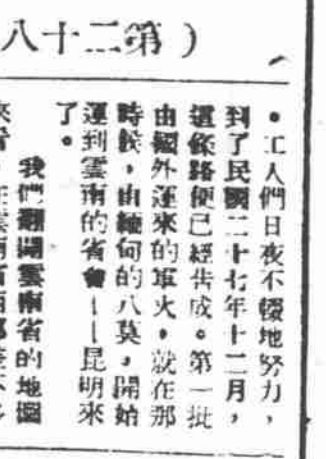 (第二十八
。工人們日夜不輟地努力，
到了民國二十七年十二月，
這條路便已經告成。第一批
由國外運來的軍火，就在那
時候，由緬甸的八莫，開始
運到雲南的省會——昆明來
了。
我們翻開雲南省的地圖
來看，在雲南省西部